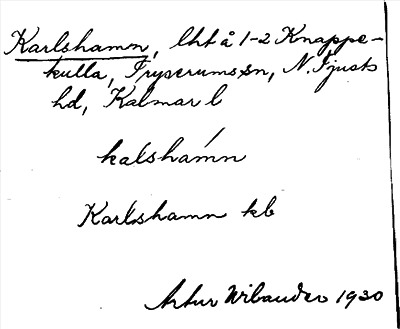 Karlshamn, lht å 1-2 Knappe-
kulla, Tryserums sn, N. Tjusts
hd, Kalmar l
kalshamn
Karlshamn kb
Artur Wibander 1930